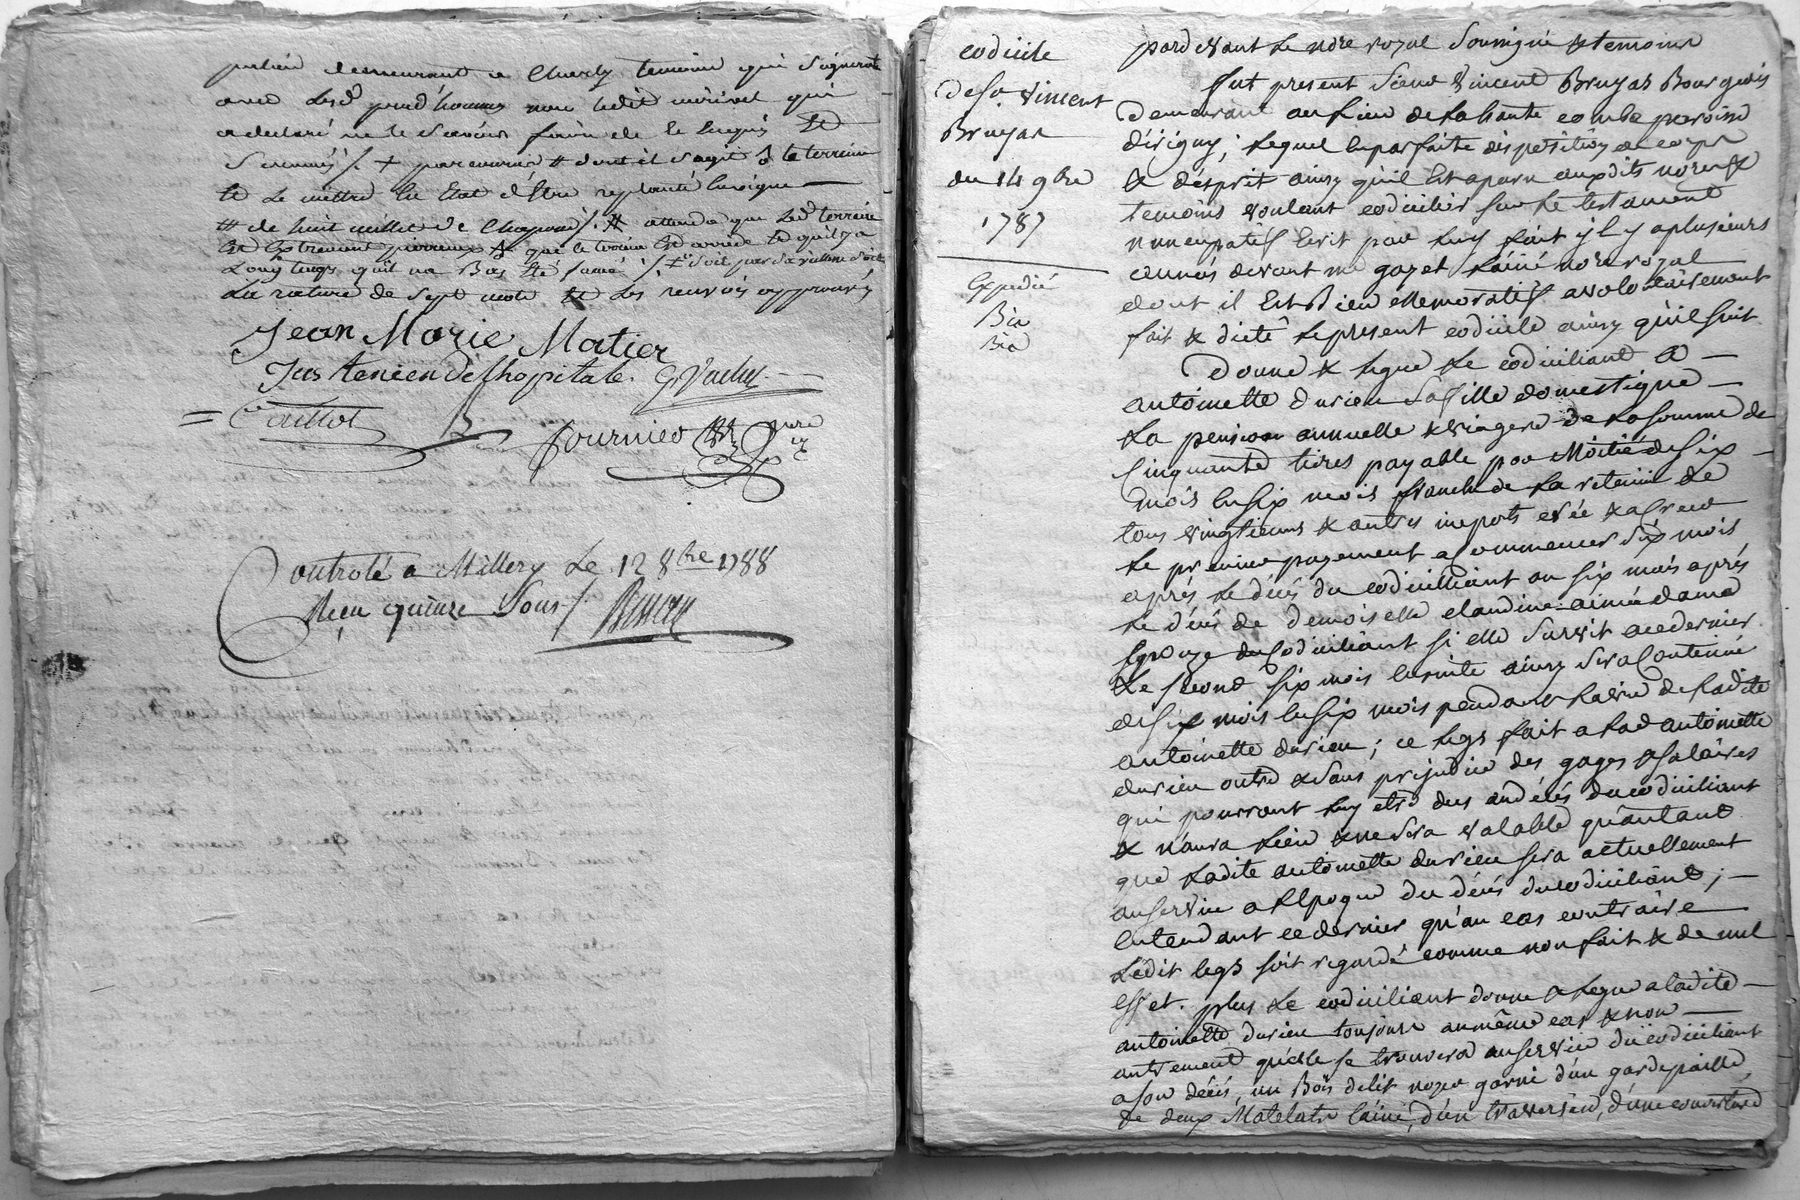 demeurant a Charly temoins qui signeront
avec led. prud'hommes non ledit qui
a declaré ne le savoir faire de ce enquis &
dont il s'agit le terrein
& le mettre en Etat d'être replanté en vigne
# de huit milles de attendu que led. terrein
est Extremement que le terrein est & qu'il y a
Long temps qu'il na Eté fumé
La rature de sept mots & les renvois approuvés
Jean Marie Matier
Just Tenien De l'hopital. G Vachez
Caillot
fournier
Controlé a Millery Le 12 8bre 1788
Reçu quinze Sous
codicile
de Sr. Vincent
Bruyas
du 14 9bre
1787
Expedié
Bis
Bis
pardevant le nore royal soussigné & temoins
fut present Sieur Vincent Bruyas Bourgeois
Demeurant au lieu de la haute combe paroisse
d'irigny, lequel en parfaite disposition de corps
& d'esprit ainsy qu'il Est aparu auxdits nore &
temoins voulant codicilier sur le testament
nuncupatif Ecrit par luy fait il y a plusieurs
années devant me gayet l'ainé nore royal
dont il Est Bien memoratif a volontairement
fait & dicté le present codicile ainsy qu'il suit
Donne & legue le codiciliant a
antoinette durieu sa fille domestique
La pension annuelle & viagere de la somme de
Cinquante livres payable par Moitié de six
mois en six mois franche de la retenue de
tous vingtiemes & autres impots créé & a créer
le premier payement a Commencer six mois
après le décés du codiciliant ou six mois après
le décés de demoiselle claudine aimée dama
Epouze du Codiciliant si elle survit a ce dernier
le second six mois ensuite ainsy sera Continué
de six mois en six mois pendant la vie de ladite
antoinette durieu; ce legs fait a lad. antoinette
durieu outre & sans prejudice des gages & salaires
qui pourront luy etre dus au décés du codiciliant
& n'aura lieu & ne sera valable qu'autant
que ladite antoinette durieu sera actuellement
au service a l'Epoque du décés du codiciliant;
Entendant ce dernier qu'au cas contraire
Ledit legs soit regardé comme non fait & de nul
effet. plus le codiciliant donne & legue a ladite
antoinette durieu toujours au même cas & non
autrement qu'elle se trouvera au service du codiciliant
a son décés, un Bois de lit noyer garni d'un garde paille,
de deux Matelats laine, d'un traversier, d'une couverture